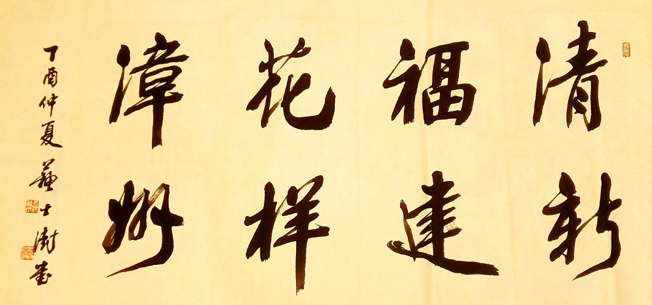 清新
福建
花样
漳州
丁酉仲夏苏士澍书